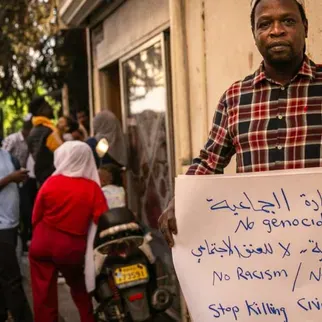 الجماعية
No genocid
لا للعنف الاجتماعي
No Racism / N
Stop Killing Civ